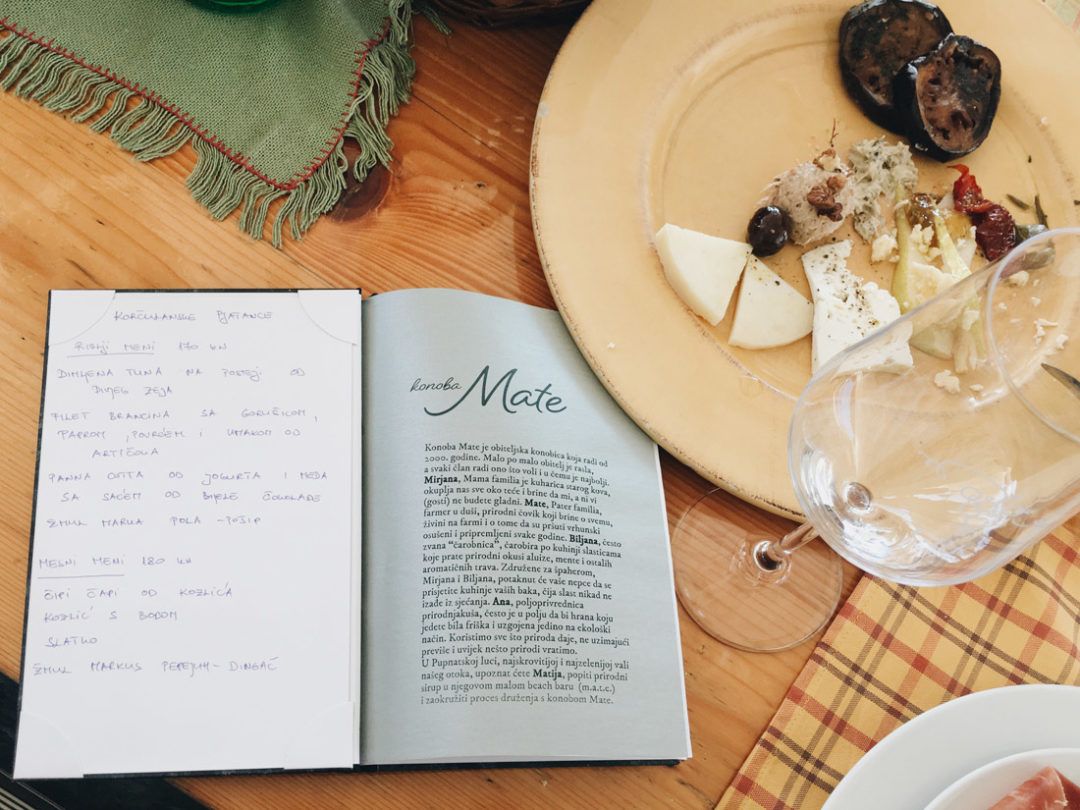 KORČULANSKE PJATANCE
RIBLJI MENI 170 kn
DIMLJENA TUNA NA POSTEJI OD
DIVJEG ZEJA
FILET BRANCINA SA GORUŠICOM,
PAPROM, POVRĆEM I UMAKOM OD
ARTIČOKA
PANNA COTTA OD JOGURTA I MEDA
SA SAĆEM OD BIJELE ČOKOLADE
ŽMUL MARKA POLA - POŠIP
MESNI MENI 180 kn
ČIPI ČAPI OD KOZLIĆA
KOZLIĆ S BOBOM
SLATKO
ŽMUL MARKUS PEPEJUH - DINGAČ
konoba Mate
Konoba Mate je obiteljska konobica koja radi od
2000. godine. Malo po malo obitelj je rasla,
a svaki član radi ono što voli i u čemu je najbolji.
Mirjana, Mama familia je kuharica starog kova,
okuplja nas sve oko teće i brine da mi, a ni vi
(gosti) ne budete gladni. Mate, Pater familia,
farmer u duši, prirodni čovik koji brine o svemu,
živini na farmi i o tome da su pršuti vrhunski
osušeni i pripremljeni svake godine. Biljana, često
zvana “čarobnica“, čarobira po kuhinji slasticama
koje prate prirodni okusi aluize, mente i ostalih
aromatičnih trava. Združene za špaherom,
Mirjana i Biljana, potaknut će vaše nepce da se
prisjetite kuhinje vaših baka, čija slast nikad ne
izađe iz sjećanja. Ana, poljoprivrednica
prirodnjakuša, često je u polju da bi hrana koju
jedete bila friška i uzgojena jedino na ekološki
način. Koristimo sve što priroda daje, ne uzimajući
previše i uvijek nešto prirodi vratimo.
U Pupnatskoj luci, najskrovitijoj i najzelenijoj vali
našeg otoka, upoznat ćete Matija, popiti prirodni
sirup u njegovom malom beach baru (m.a.t.e.)
i zaokružiti proces druženja s konobom Mate.